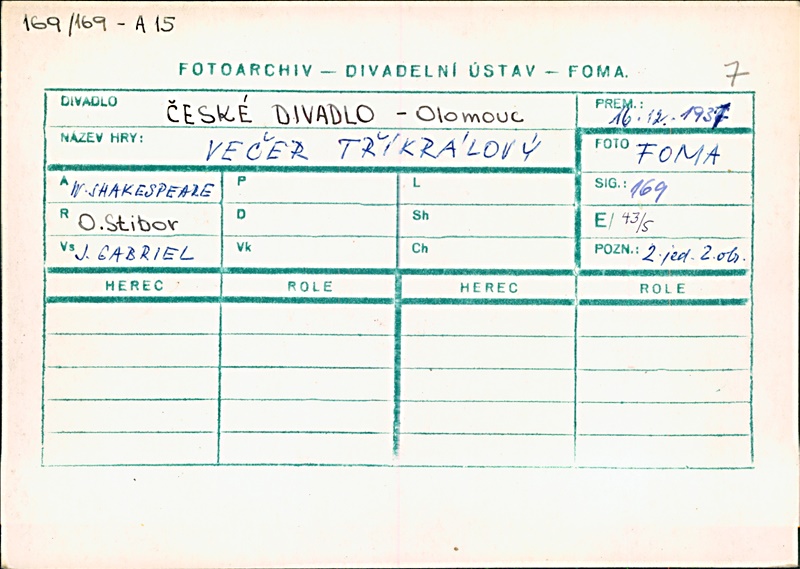 169/169 - A 15
7
FOTOARCHIV — DIVADELNÍ ÚSTAV — FOMA.
DIVADLO ČESKÉ DIVADLO - Olomouc
PREM.: 16.12.1937
NÁZEV HRY: VEČER TŘÍKRÁLOVÝ
FOTO FOMA
A W. SHAKESPEARE P L
SIG.: 169
R O. Stibor D Sh
E/ 43/5
Vs J. GABRIEL Vk Ch
POZN.: 2. jed. 2. obr.
HEREC ROLE HEREC ROLE